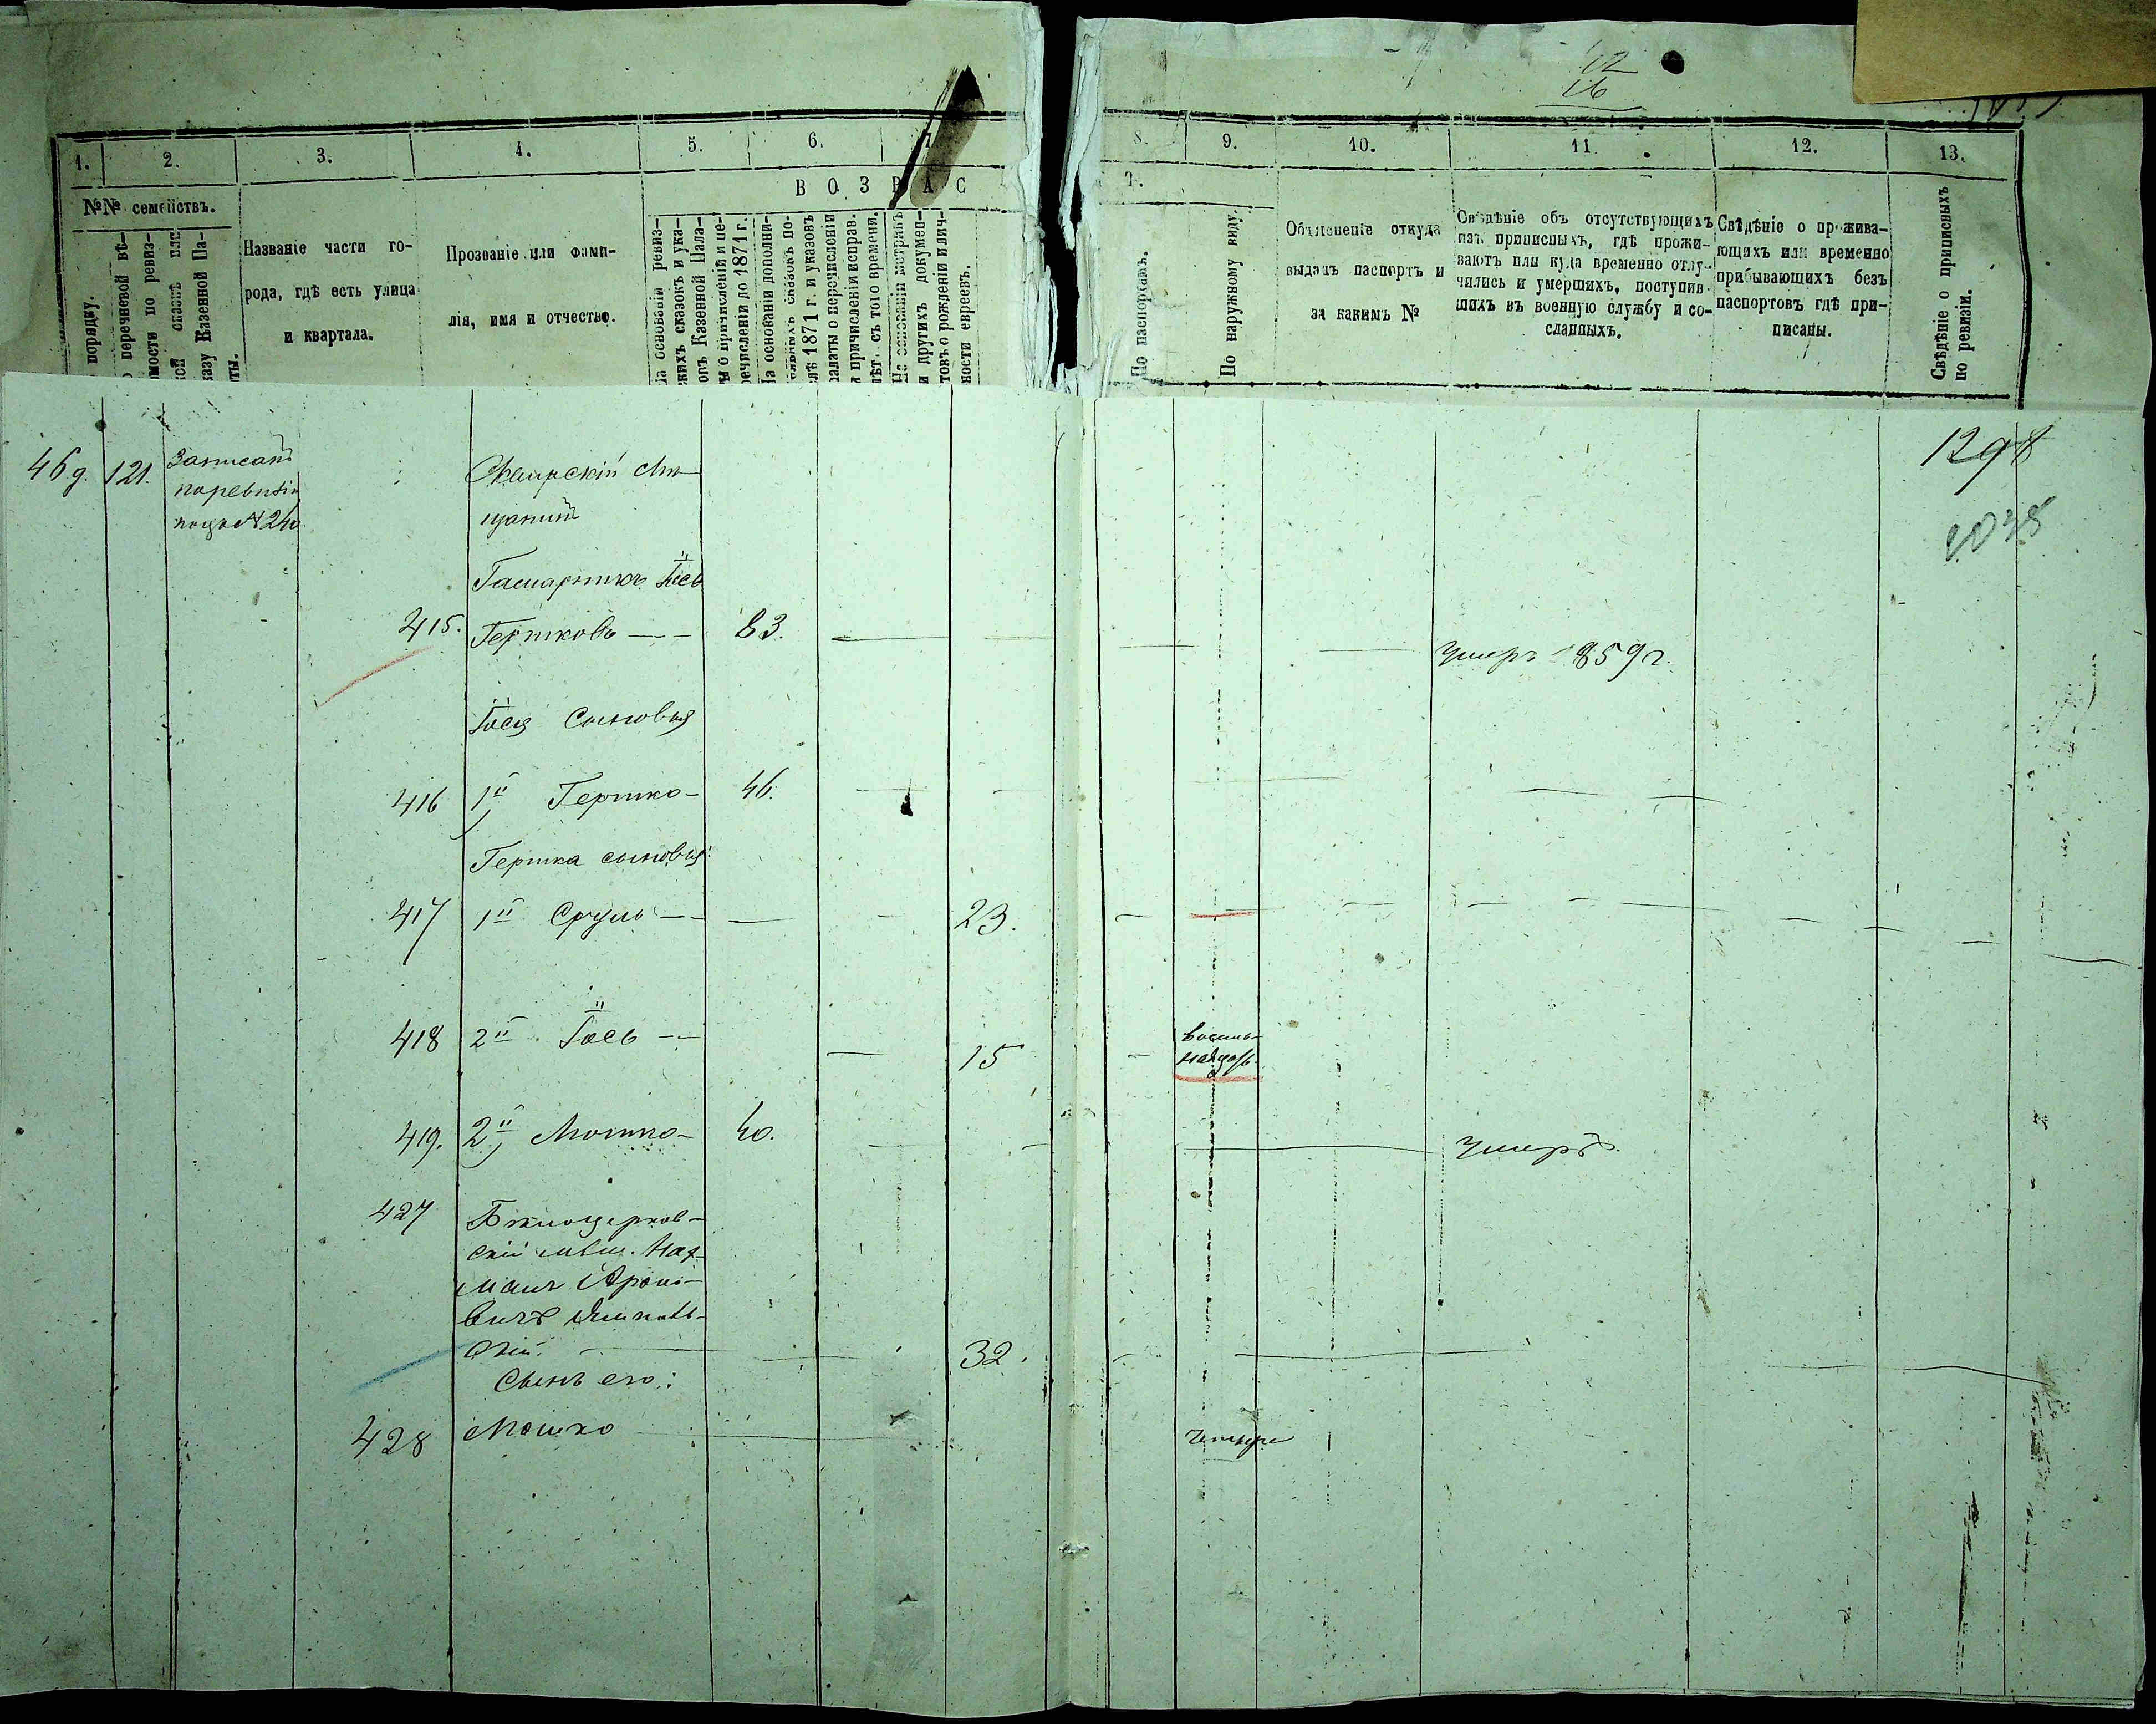 12
16
1. 2. 3. 4. 5. 6. 7. 8. 9. 10. 11. 12. 13.
ВОЗРАС Т.
№№ семействъ.
порядку.
перечневой вѣ-
Название части го-
рода, гдѣ есть улица
и квартала.
Прозваніе или фами-
лія, имя и отчество.
На основаніи ревиз-
скихъ сказокъ и ука-
зовъ Казенной Пала-
ты о причисленіи и пе-
речисленіи до 1871 г.
На основаніи дополни-
тельныхъ сказокъ по-
слѣ 1871 г. и указовъ
палаты о перечисленіи
и причисленіи исправ.
лѣт. съ того времени.
На основаніи метрикъ
и другихъ докумен-
товъ о рожденіи и лич-
ности евреевъ.
По паспортамъ.
По наружному виду.
Объясненіе откуда
выданъ паспортъ и
за какимъ №
Свѣдѣніе объ отсутствующихъ
изъ приписныхъ, гдѣ прожи-
ваютъ или куда временно отлу-
чились и умершихъ, поступив-
шихъ въ военную службу и со-
сланныхъ.
Свѣдѣніе о прожива-
ющихъ или временно
прибывающихъ безъ
паспортовъ гдѣ при-
писаны.
Свѣдѣніе о приписныхъ
по ревизіи.
46 д. 121. Записанъ
по ревизіи
подъ № 240
Сквирскій мѣ-
щанинъ
1298
1038
Іось
415. Гершковъ — — 83. Умеръ 1859 г.
Іося Сыновья
416 1й Гершко — 46.
Гершка сыновья:
417 1й Сруль — — 23.
418 2й Іось — — 15 восемь-
надцать
419. 2й Мошко — 40. Умеръ
427 Бѣлоцерков-
скій мѣщ. Нах-
манъ Ароно-
вичъ
скій. 32.
Сынъ его:
428 Мошко четыре